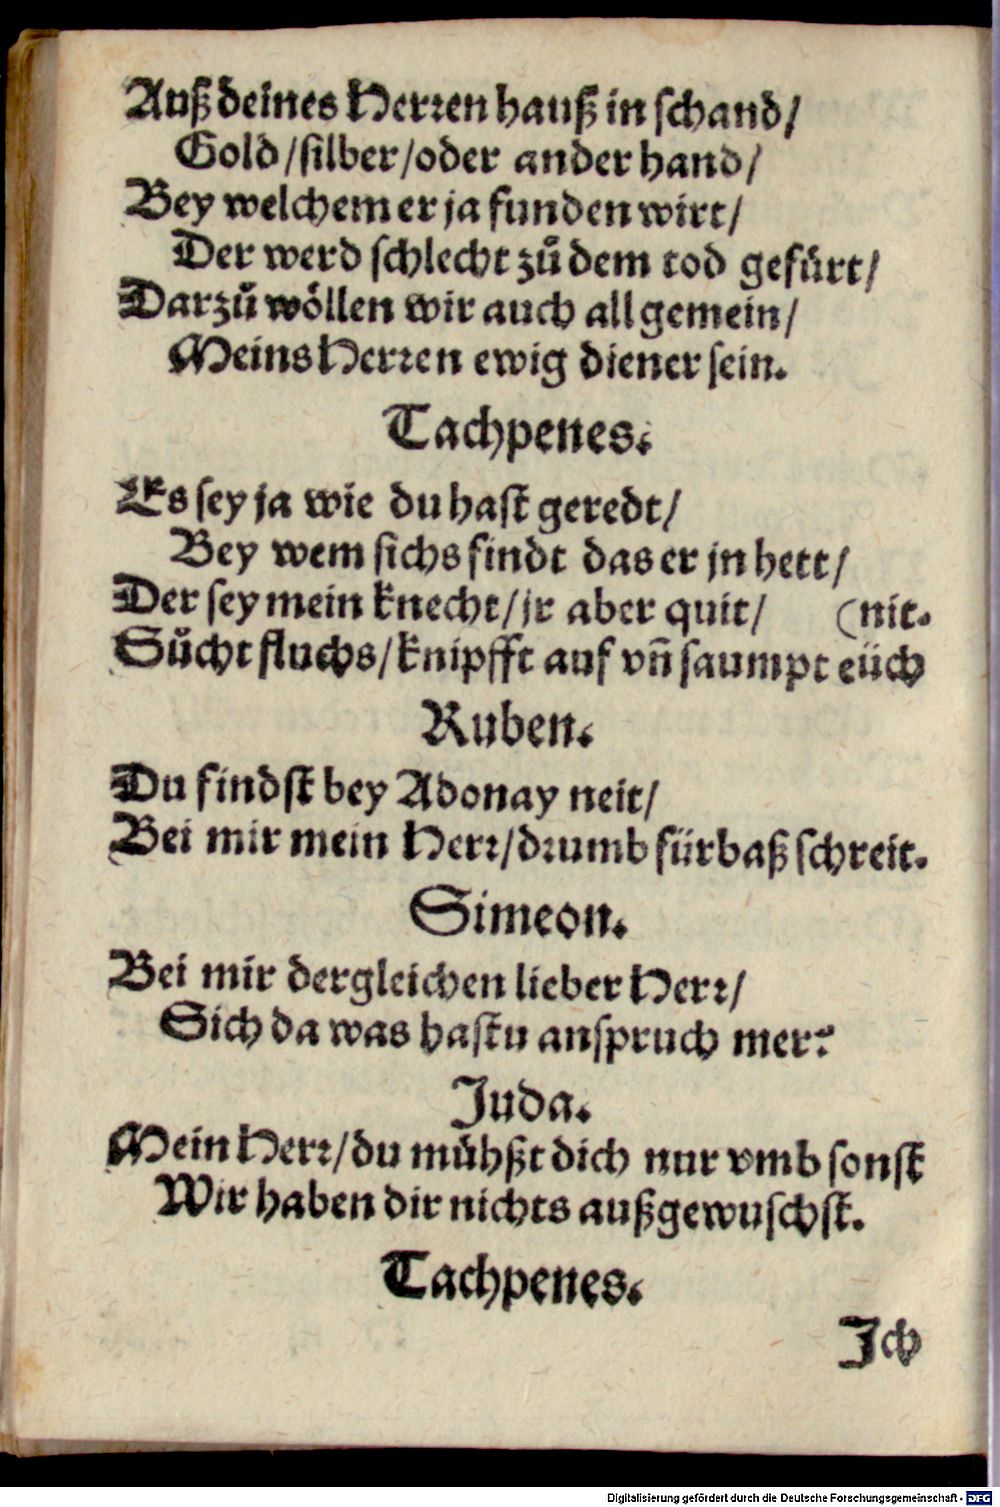 Auß deines Herꝛen hauß in ſchand/
Gold/ſilber/oder ander hand/
Bey welchem er ja funden wirt/
Der werd ſchlecht zuͦ dem tod gefuͤrt/
Darzuͦ woͤllen wir auch all gemein/
Meins Herꝛen ewig diener ſein.
Tachpenes.
Es ſey ja wie du haſt geredt/
Bey wem ſichs findt das er jn hett/
Der ſey mein knecht/jr aber quit/ (nit.
Suͦcht fluchs/knipfft auf vñ ſaumpt eüch
Ruben.
Du findſt bey Adonay neit/
Bei mir mein Herꝛ/dꝛumb fürbaß ſchreit.
Simeon.
Bei mir dergleichen lieber Herꝛ/
Sich da was haſtu anſpruch mer?
Juda.
Mein Herꝛ/du muͤhßt dich nur vmb ſonſt
Wir haben dir nichts außgewuſchſt.
Tachpenes.
Jch
Digitalisierung gefördert durch die Deutsche Forschungsgemeinschaft - DFG